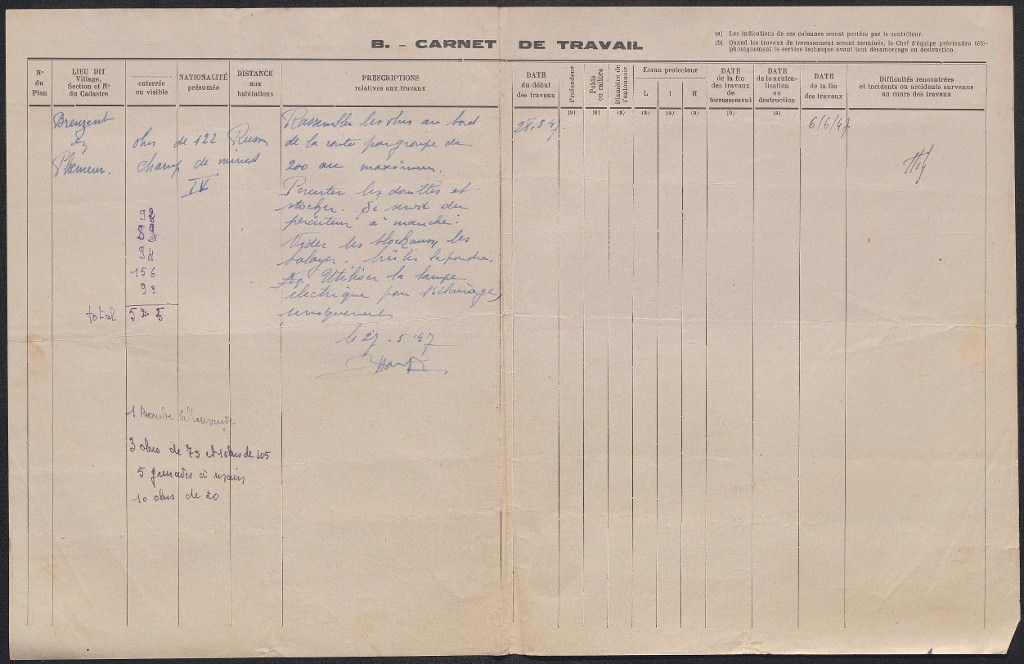 B. - CARNET DE TRAVAIL
(a) Les indications de ces colonnes seront portées par le contrôleur.
(b) Quand les travaux de terrassement seront terminés, le Chef d'équipe préviendra télé-
phoniquement le service technique avant tout désamorçage ou destruction.
N° du Plan
LIEU DIT Village, Section et N° du Cadastre
enterrée ou visible
NATIONALITÉ présumée
DISTANCE aux habitations
PRESCRIPTIONS relatives aux travaux
DATE du début des travaux
Profondeur (a)
Poids ou calibre (a)
Diamètre de l'entonnoir (a)
Ecran protecteur
L (a)
l (a)
H (a)
DATE de la fin des travaux de terrassement (b)
DATE de la neutralisation ou destruction (a)
DATE de la fin des travaux
Difficultés rencontrées et incidents ou accidents survenus au cours des travaux
en
Plœmeur.
obus de 122 Russes
champ de mines
IV
Rassembler les obus au bord
de la route par groupe de
200 au maximum.
Percuter les douilles et
stocker. Se servir du
percuteur à manche.
Vider les blockhaus, les
balayer.
Utiliser la lampe
électrique pour l'éclairage,
uniquement
le 27.5.47
28.5.47
6/6/47
92
156
99
total 525
1 Bombe allemande
3 obus de 75 et 1 obus de 105
5 grenades à mains
10 obus de 20